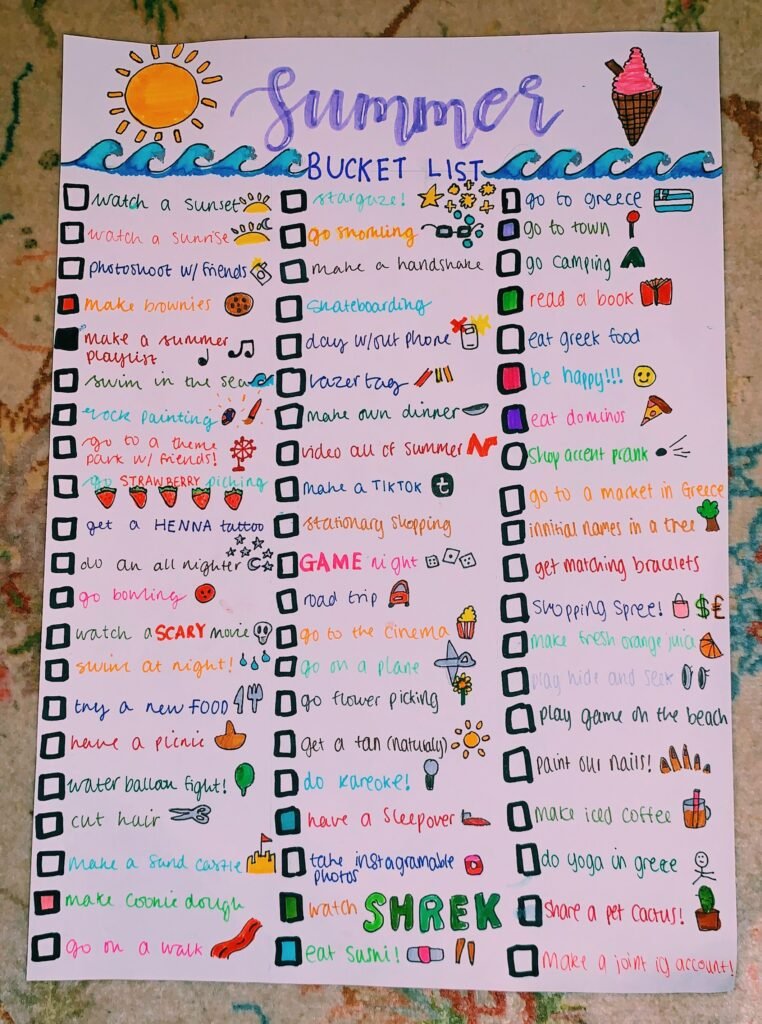 Summer
BUCKET LIST
watch a sunset
watch a sunrise
photoshoot w/ friends
make brownies
make a summer
playlist
swim in the sea
rock painting
go to a theme
park w/ friends!
go STRAWBERRY picking
get a HENNA tattoo
do an all nighter
go bowling
watch a SCARY movie
swim at night!
try a new FOOD
have a picnic
water balloon fight!
cut hair
make a sand castle
make cookie dough
go on a walk
stargaze!
go snorkling
make a handshake
skateboarding
day w/out phone
lazer tag
make own dinner
video all of summer
make a TIKTOK
stationary shopping
GAME night
road trip
go to the cinema
go on a plane
go flower picking
get a tan (naturaly)
do kareoke!
have a sleepover
take instagramable
photos
watch SHREK
eat sushi!
go to greece
go to town
go camping
read a book
eat greek food
be happy!!!
eat dominos
shop accent prank
go to a market in Greece
innitial names in a tree
get matching bracelets
shopping spree! $ £
make fresh orange juice
play hide and seek
play game on the beach
paint our nails!
make iced coffee
do yoga in greece
share a pet cactus!
make a joint ig account!